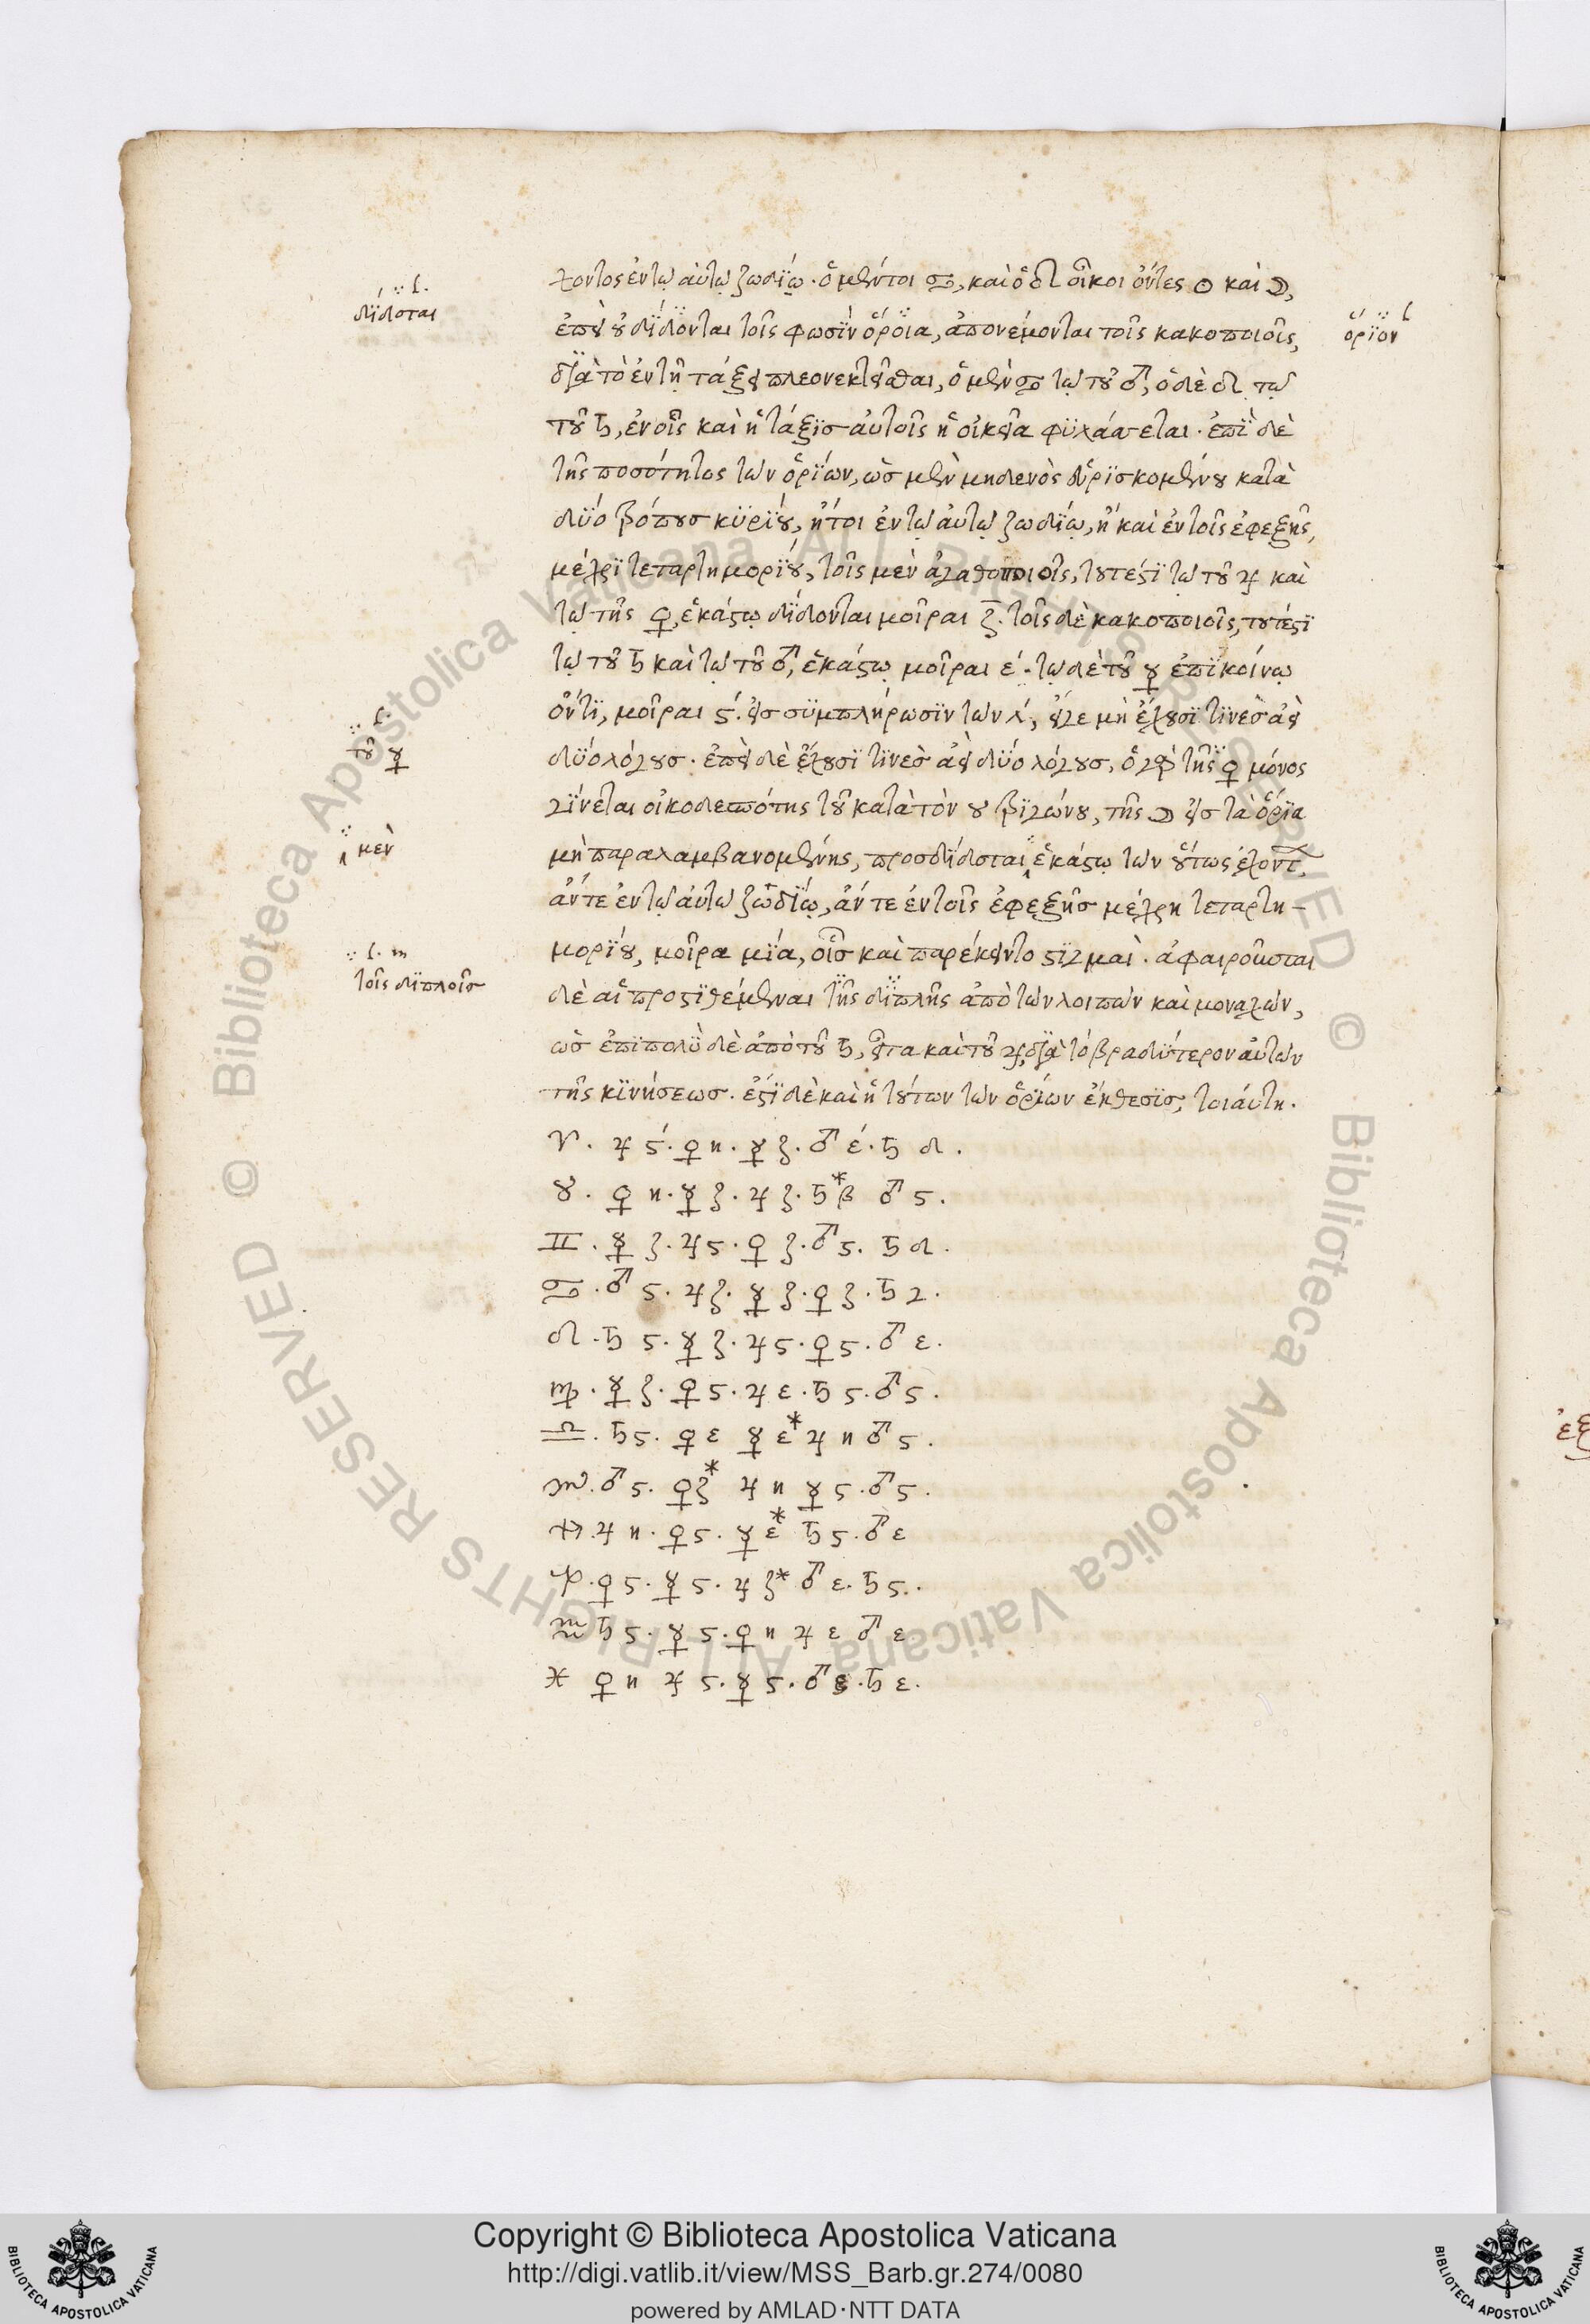 χοντος ἐν τῷ αὐτῷ ζωδίῳ. ὁ μέντοι ♋, καὶ ὁ ♌ οἶκοι ὄντες ☉ καὶ ☽,
δίδοται
ἐπεὶ οὐ δίδονται τοῖς φωσὶν ὅροια, ἀπονέμονται τοῖς κακοποιοῖς,
ὅριον
διὰ τὸ ἐν τῇ τάξει πλεονεκτεῖσθαι, ὁ μὲν ♋ τῷ τοῦ ♂, ὁ δὲ ♌ τῷ
τοῦ ♄, ἐν οἷς καὶ ἡ τάξις αὐτοῖς ἡ οἰκεία φυλάσσεται. ἐπὶ δὲ
τῆς ποσότητος τῶν ὁρίων, ὡς μὲν μηδενὸς εὑρισκομένου κατὰ
δύο τρόπους κυρίου, ἤτοι ἐν τῷ αὐτῷ ζωδίῳ, ἢ καὶ ἐν τοῖς ἐφεξῆς,
μέχρι τεταρτημορίου, τοῖς μὲν ἀγαθοποιοῖς, τουτέστι τῷ τοῦ ♃ καὶ
τῷ τῆς ♀, ἑκάστῳ δίδονται μοῖραι ζ. τοῖς δὲ κακοποιοῖς, τουτέστι
τῷ τοῦ ♄ καὶ τῷ τοῦ ♂, ἑκάστῳ μοῖραι έ. τῷ δὲ τοῦ ☿ ἐπικοίνῳ
ὄντι, μοῖραι ϛ́. εἰς συμπλήρωσιν τῶν λ́, εἴγε μὴ ἔχουσί τινες ἀεὶ
τοῦ ☿
δύο λόγους. ἐπεὶ δὲ ἔχουσί τινες ἀεὶ δύο λόγους, ὁ γὰρ τῆς ♀ μόνος
γίνεται οἰκοδεσπότης τοῦ κατὰ τὸν ♉ τριγώνου, τῆς ☽ εἰς τὰ ὅρια
μὲν
μὴ παραλαμβανομένης, προσδίδοται ἑκάστῳ τῶν οὕτως ἐχόντων,
ἄν τε ἐν τῷ αὐτῷ ζωδίῳ, ἄν τε ἐν τοῖς ἐφεξῆς μέχρη τεταρτη-
μορίου, μοῖρα μία, οἷς καὶ παρέκειντο στιγμαὶ. ἀφαιροῦσται
τοῖς διπλοῖς
δὲ αἱ προστιθέμεναι τῆς διπλῆς ἀπὸ τῶν λοιπῶν καὶ μοναχῶν,
ὡς ἐπιπολὺ δὲ ἀπὸ τοῦ ♄, εἶτα καὶ τοῦ ♃, διὰ τὸ βραδύτερον αὐτῶν
τῆς κινήσεως. ἐστὶ δὲ καὶ ἡ τούτων τῶν ὁρίων ἔκθεσις, τοιαύτη.
♈. ♃ ϛ́. ♀ η. ☿ ζ. ♂ έ. ♄ δ.
♉. ♀ η. ☿ ζ. ♃ ζ. ♄ *β ♂ ϛ.
♊. ☿ ζ. ♃ ϛ. ♀ ζ. ♂ ϛ. ♄ δ.
♋. ♂ ϛ. ♃ ζ. ☿ ζ. ♀ ζ. ♄ γ.
♌. ♄ ϛ. ☿ ζ. ♃ ϛ. ♀ ϛ. ♂ ε.
♍. ☿ ζ. ♀ ϛ. ♃ ε. ♄ ϛ. ♂ ϛ.
♎. ♄ ϛ. ♀ ε ☿ ε* ♃ η ♂ ϛ.
♏. ♂ ϛ. ♀ ζ* ♃ η ☿ ϛ. ♂ ϛ.
♐. ♃ η. ♀ ϛ. ☿ ε* ♄ ϛ. ♂ ε
♑. ♀ ϛ. ☿ ϛ. ♃ ζ* ♂ ε. ♄ ϛ.
♒ ♄ ϛ. ☿ ϛ. ♀ η ♃ ε ♂ ε.
♓ ♀ η ♃ ϛ. ☿ ϛ. ♂ ε. ♄ ε.
© Biblioteca Apostolica Vaticana ALL RIGHTS RESERVED
Copyright © Biblioteca Apostolica Vaticana
http://digi.vatlib.it/view/MSS_Barb.gr.274/0080
powered by AMLAD·NTT DATA
BIBLIOTECA APOSTOLICA VATICANA
BIBLIOTECA APOSTOLICA VATICANA